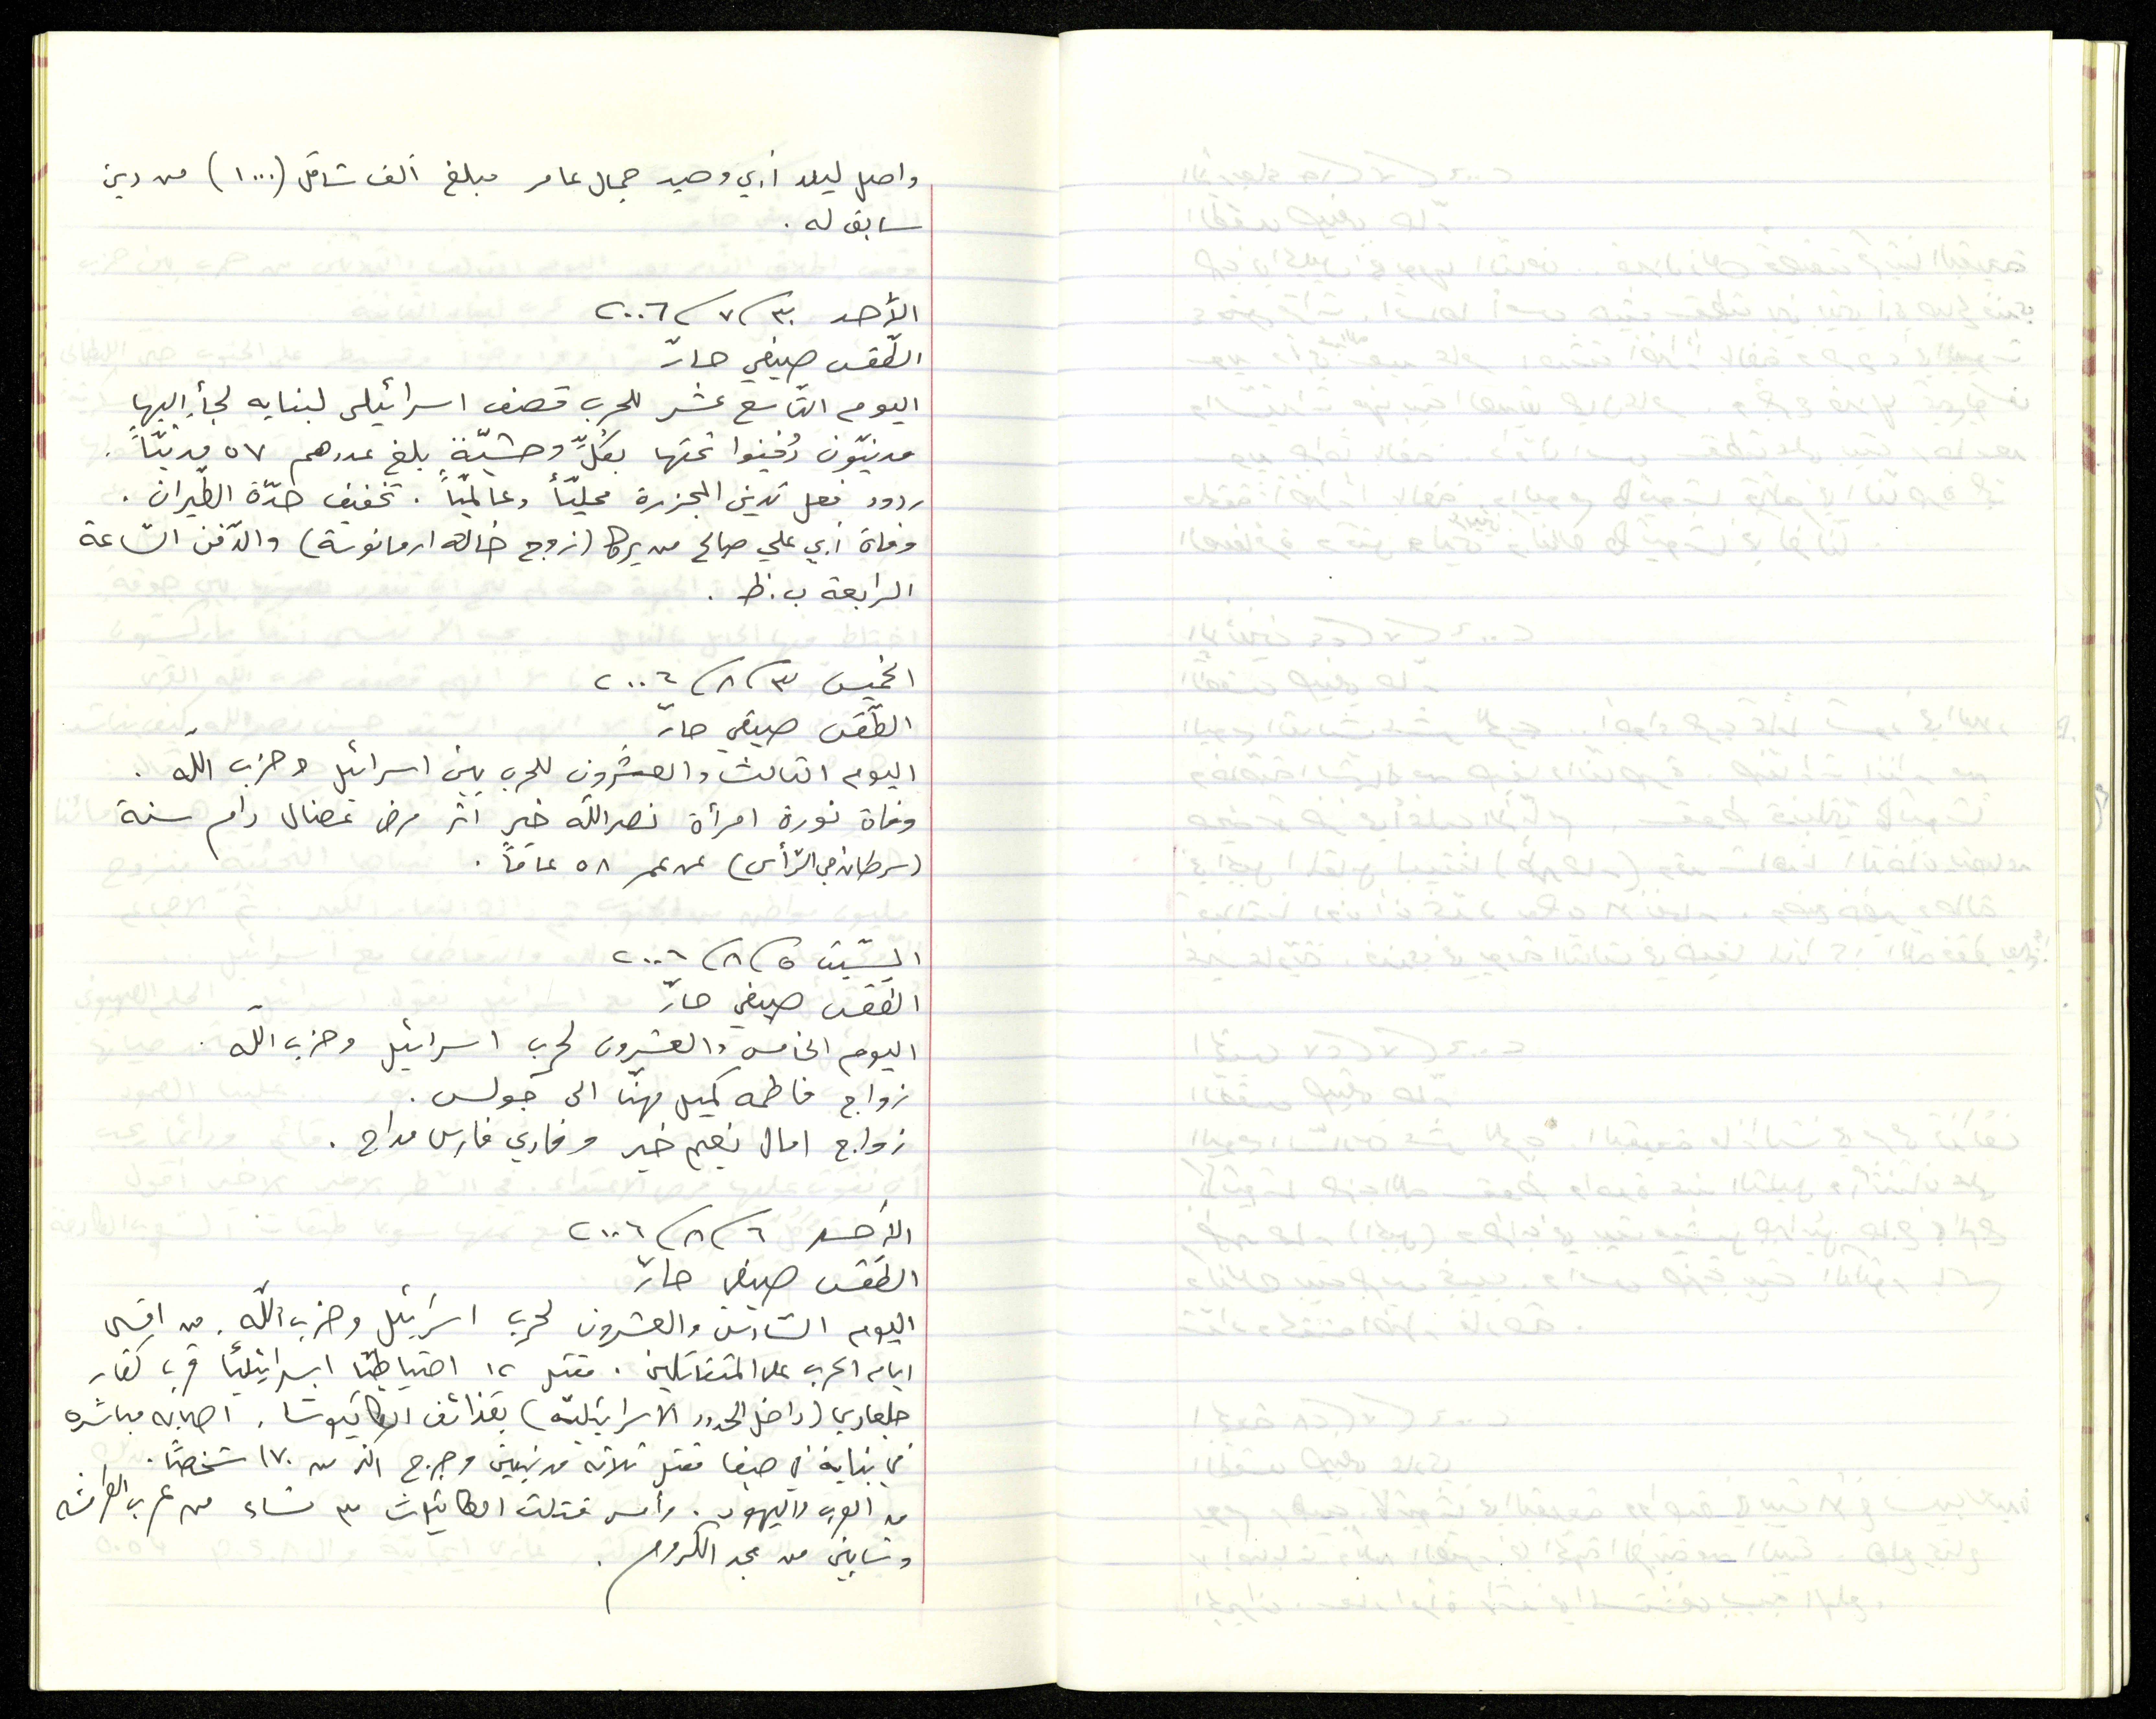 واصل ليد أبي وحيد جمال عامر مبلغ ألف شاقل (١٠٠٠) من دين
سابق له .
الأحد ٣٠/٧/٢٠٠٦
الطّقس صيفي حارّ
اليوم التاسع عشر للحرب قصف اسرائيلي لبنايه لجأ إليها
مدنيّون دُفنوا تحتها بكلّ وحشيّة بلغ عددهم ٥٧ مدنيّاً .
ردود فعل تدين المجزرة محليّاً وعالميّاً . تخفيف حدّة الطّيران .
وفاة أبي علي صالح من يركا (زوج خالة ارمانوسة) والدّفن السّاعة
الرابعة ب.ظ .
الخميس ٣/٨/٢٠٠٦
الطّقس صيفي حارّ
اليوم الثالث والعشرون للحرب بين اسرائيل وحزب اللّه .
وفاة نورة امرأة نصراللّه خير اثر مرض عضال دام سنة
(سرطان في الرّأس) عن عمر ٥٨ عاماً .
السّبت ٥/٨/٢٠٠٦
الطّقس صيفي حارّ
اليوم الخامس والعشرون لحرب اسرائيل وحزب اللّه .
زواج فاطمه كميل مهنّا الى جولس .
زواج امال نعيم خير وفادي فارس مداح .
الأحد ٦/٨/٢٠٠٦
الطقس صيفي حارّ
اليوم السّادس والعشرون لحرب اسرائيل وحزب اللّه . من اقسى
ايام الحرب على المتقاتلين . مقتل ١٢ احتياطيّا اسرائيليّا قرب كفار
جلعادي (داخل الحدود الاسرائيليّة) بقذائف الكاتيوشا . اصابه مباشره
في بناية في حيفا مقتل ثلاثه مدنيين وجرح اكثر من ١٧٠ شخصًا .
من العرب واليهود . وأمس قتلت الكاتيوشا ٣ نساء من عرب العرامشه
وشابين من مجد الكروم .